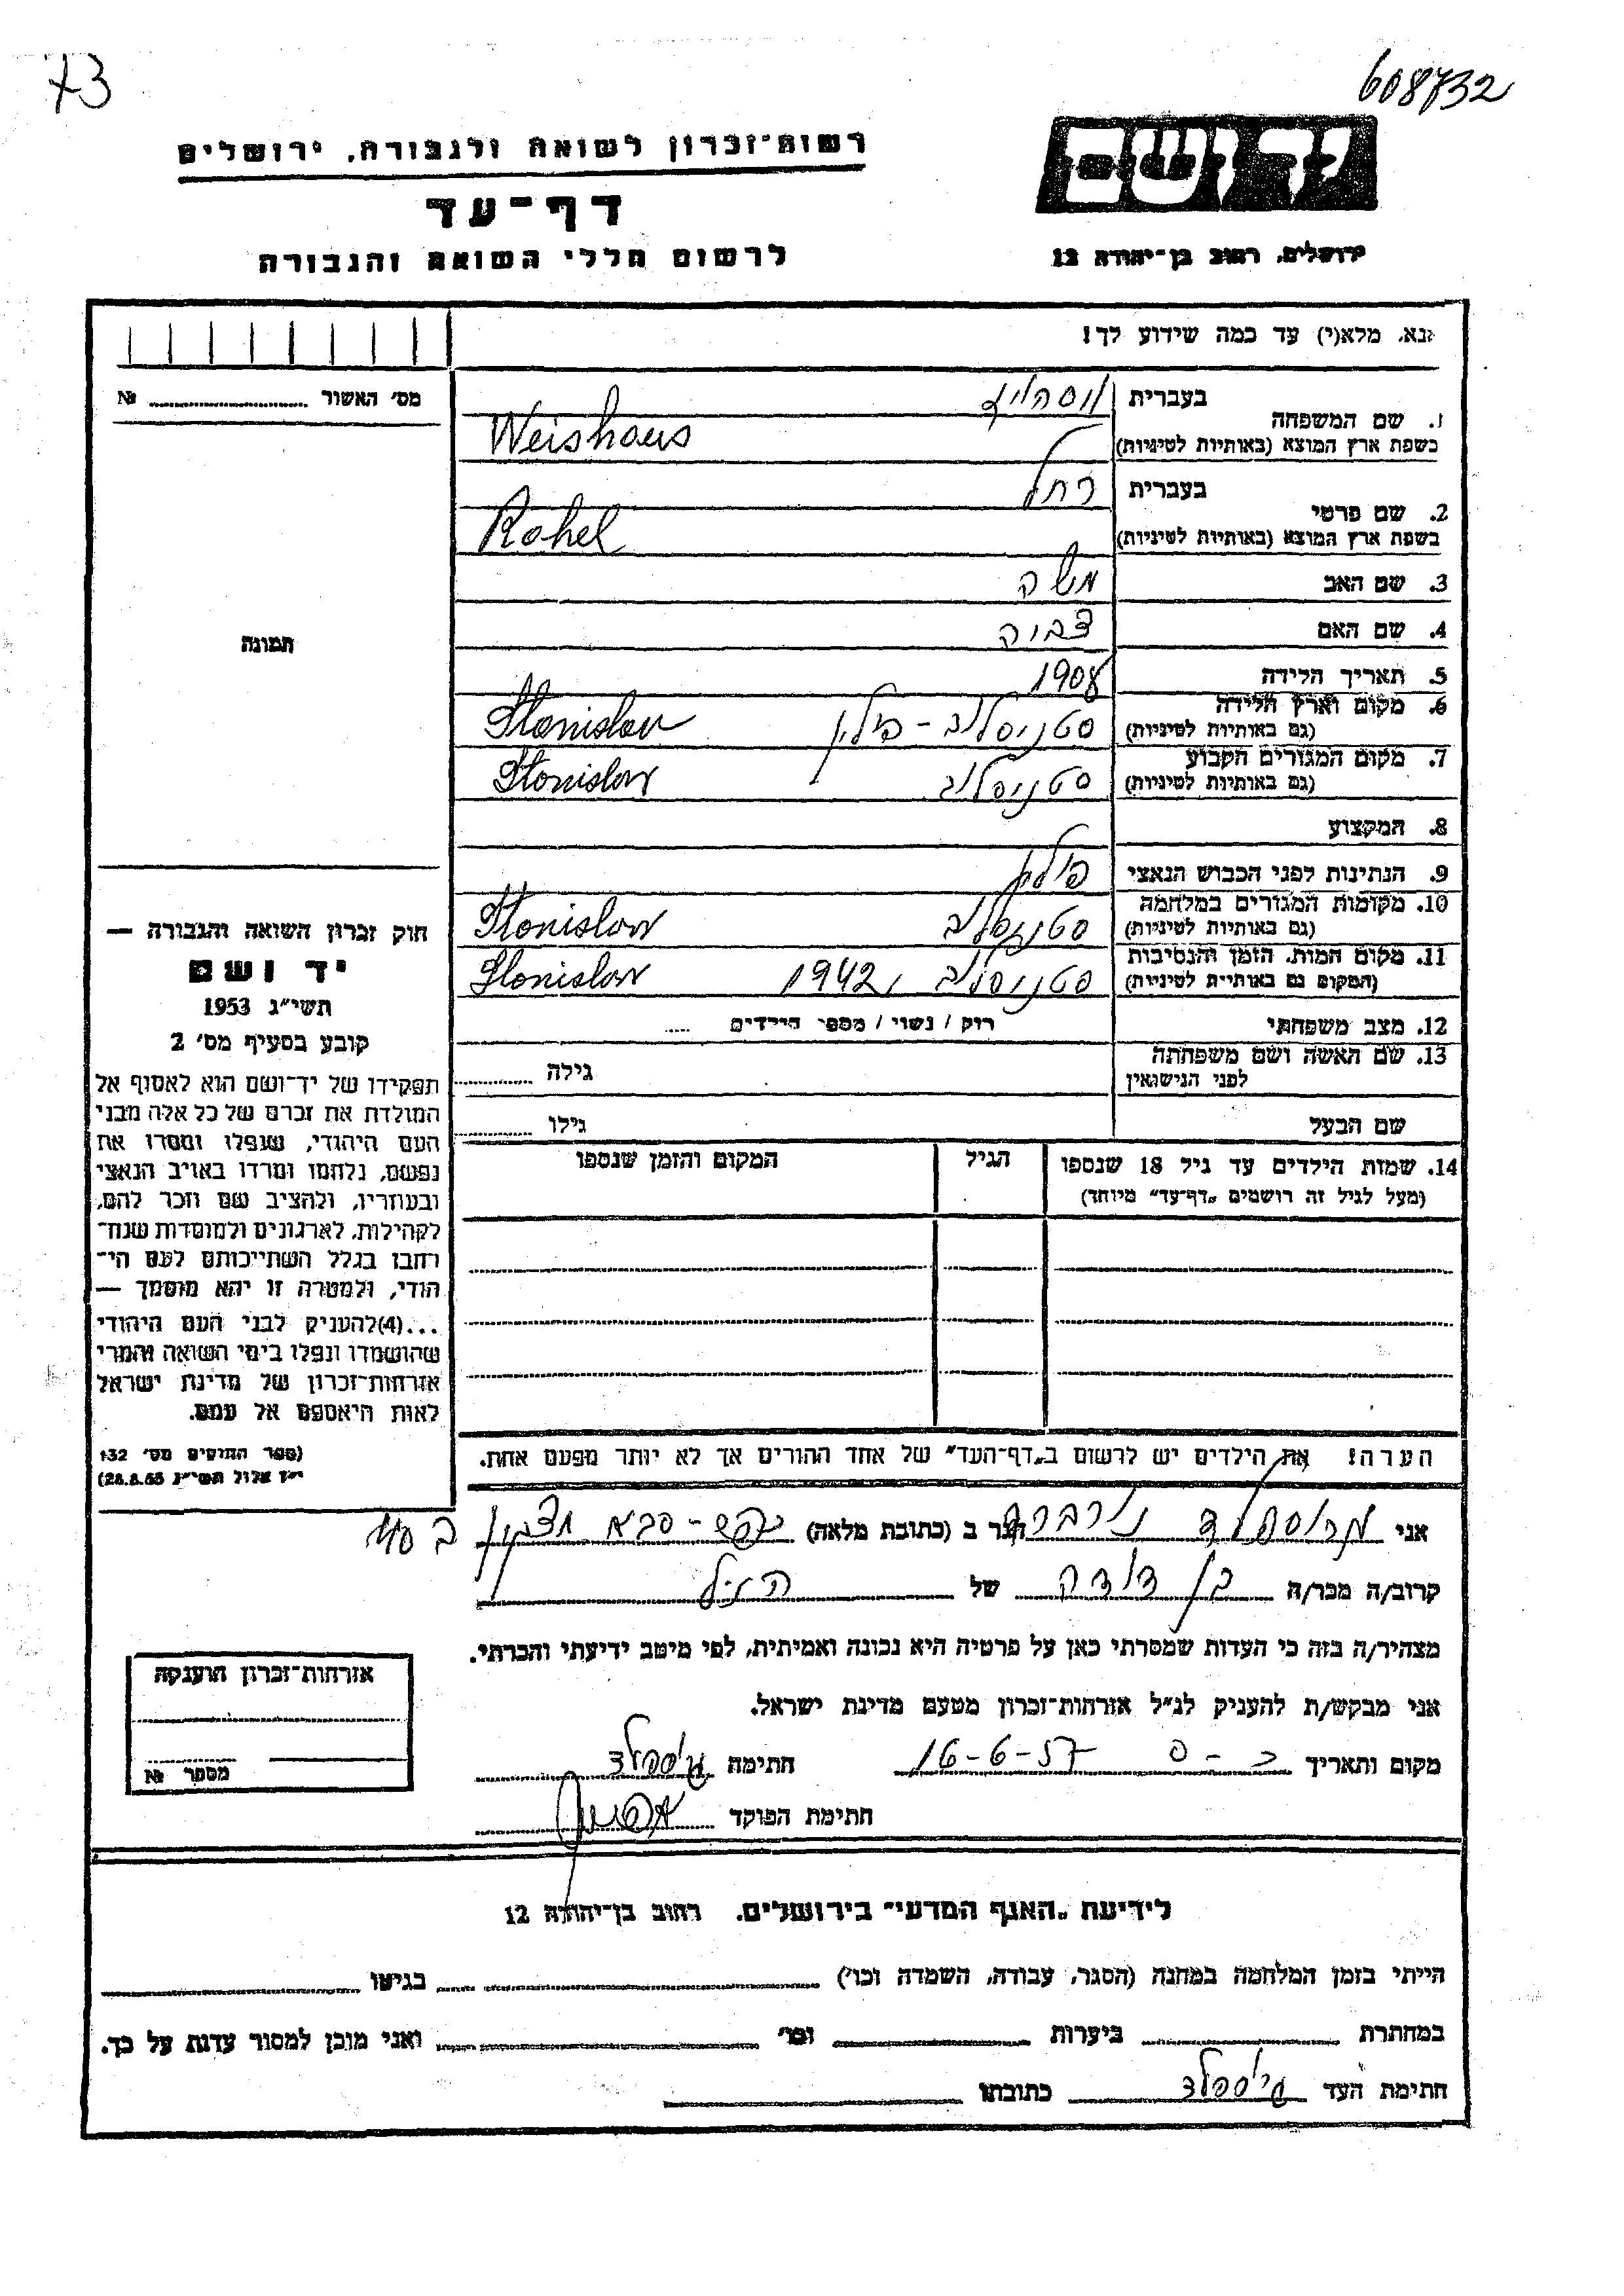 73
608732
רשות-זכרון לשואה ולגבורה, ירושלים
דף-עד
לרשום חללי השואה והגבורה
יד ושם
ירושלים, רחוב בן-יהודה 12
נא, מלא(י) עד כמה שידוע לך!
מס' האשור № 
1. שם המשפחה בעברית
בשפת ארץ המוצא (באותיות לטיניות) Weishaus
2. שם פרטי בעברית רחל
בשפת ארץ המוצא (באותיות לטיניות) Rahel
3. שם האב משה
4. שם האם צביה
5. תאריך הלידה 1908
6. מקום וארץ הלידה סטניסלוב - פולין Stanislav
(גם באותיות לטיניות)
7. מקום המגורים הקבוע סטניסלוב Stanislav
(גם באותיות לטיניות)
8. המקצוע
9. הנתינות לפני הכבוש הנאצי פולין
10. מקומות המגורים במלחמה סטניסלוב Stanislav
(גם באותיות לטיניות)
11. מקום המות, הזמן והנסיבות סטניסלוב, 1942 Stanislav
(המקום גם באותיות לטיניות)
12. מצב משפחתי רווק / נשוי / מספר הילדים
13. שם האשה ושם משפחתה גילה
לפני הנישואין
שם הבעל גילו
14. שמות הילדים עד גיל 18 שנספו הגיל המקום והזמן שנספו
(מעל לגיל זה רושמים „דף-עד" מיוחד)
הערה! את הילדים יש לרשום ב„דף-העד" של אחד ההורים אך לא יותר מפעם אחת.
תמונה
חוק זכרון השואה והגבורה —
יד ושם
תשי"ג 1953
קובע בסעיף מס' 2
תפקידו של יד-ושם הוא לאסוף אל
המולדת את זכרם של כל אלה מבני
העם היהודי, שנפלו ומסרו את
נפשם, נלחמו ומרדו באויב הנאצי
ובעוזריו, ולהציב שם וזכר להם,
לקהילות, לארגונים ולמוסדות שנח-
רבו בגלל השתייכותם לעם הי-
הודי, ולמטרה זו יהא מוסמך —
...(4)להעניק לבני העם היהודי
שהושמדו ונפלו בימי השואה והמרי
אזרחות-זכרון של מדינת ישראל
לאות היאספם אל עמם.
(ספר החוקים מס' 132
י"ז אלול תשי"ג 28.8.53)
אני הגר ב (כתובת מלאה) כפר-סבא
קרוב/ה מכר/ה בן דודה של הנ"ל
מצהיר/ה בזה כי העדות שמסרתי כאן על פרטיה היא נכונה ואמיתית, לפי מיטב ידיעתי והכרתי.
אני מבקש/ת להעניק לנ"ל אזרחות-זכרון מטעם מדינת ישראל.
מקום ותאריך כ-ס 16-6-57 חתימה
חתימת הפוקד
אזרחות-זכרון הוענקה
מספר №
לידיעת „האגף המדעי" בירושלים. רחוב בן-יהודה 12
הייתי בזמן המלחמה במחנה (הסגר, עבודה, השמדה וכו') בגיטו
במחתרת ביערות וכו' ואני מוכן למסור עדות על כך.
חתימת העד כתובתו